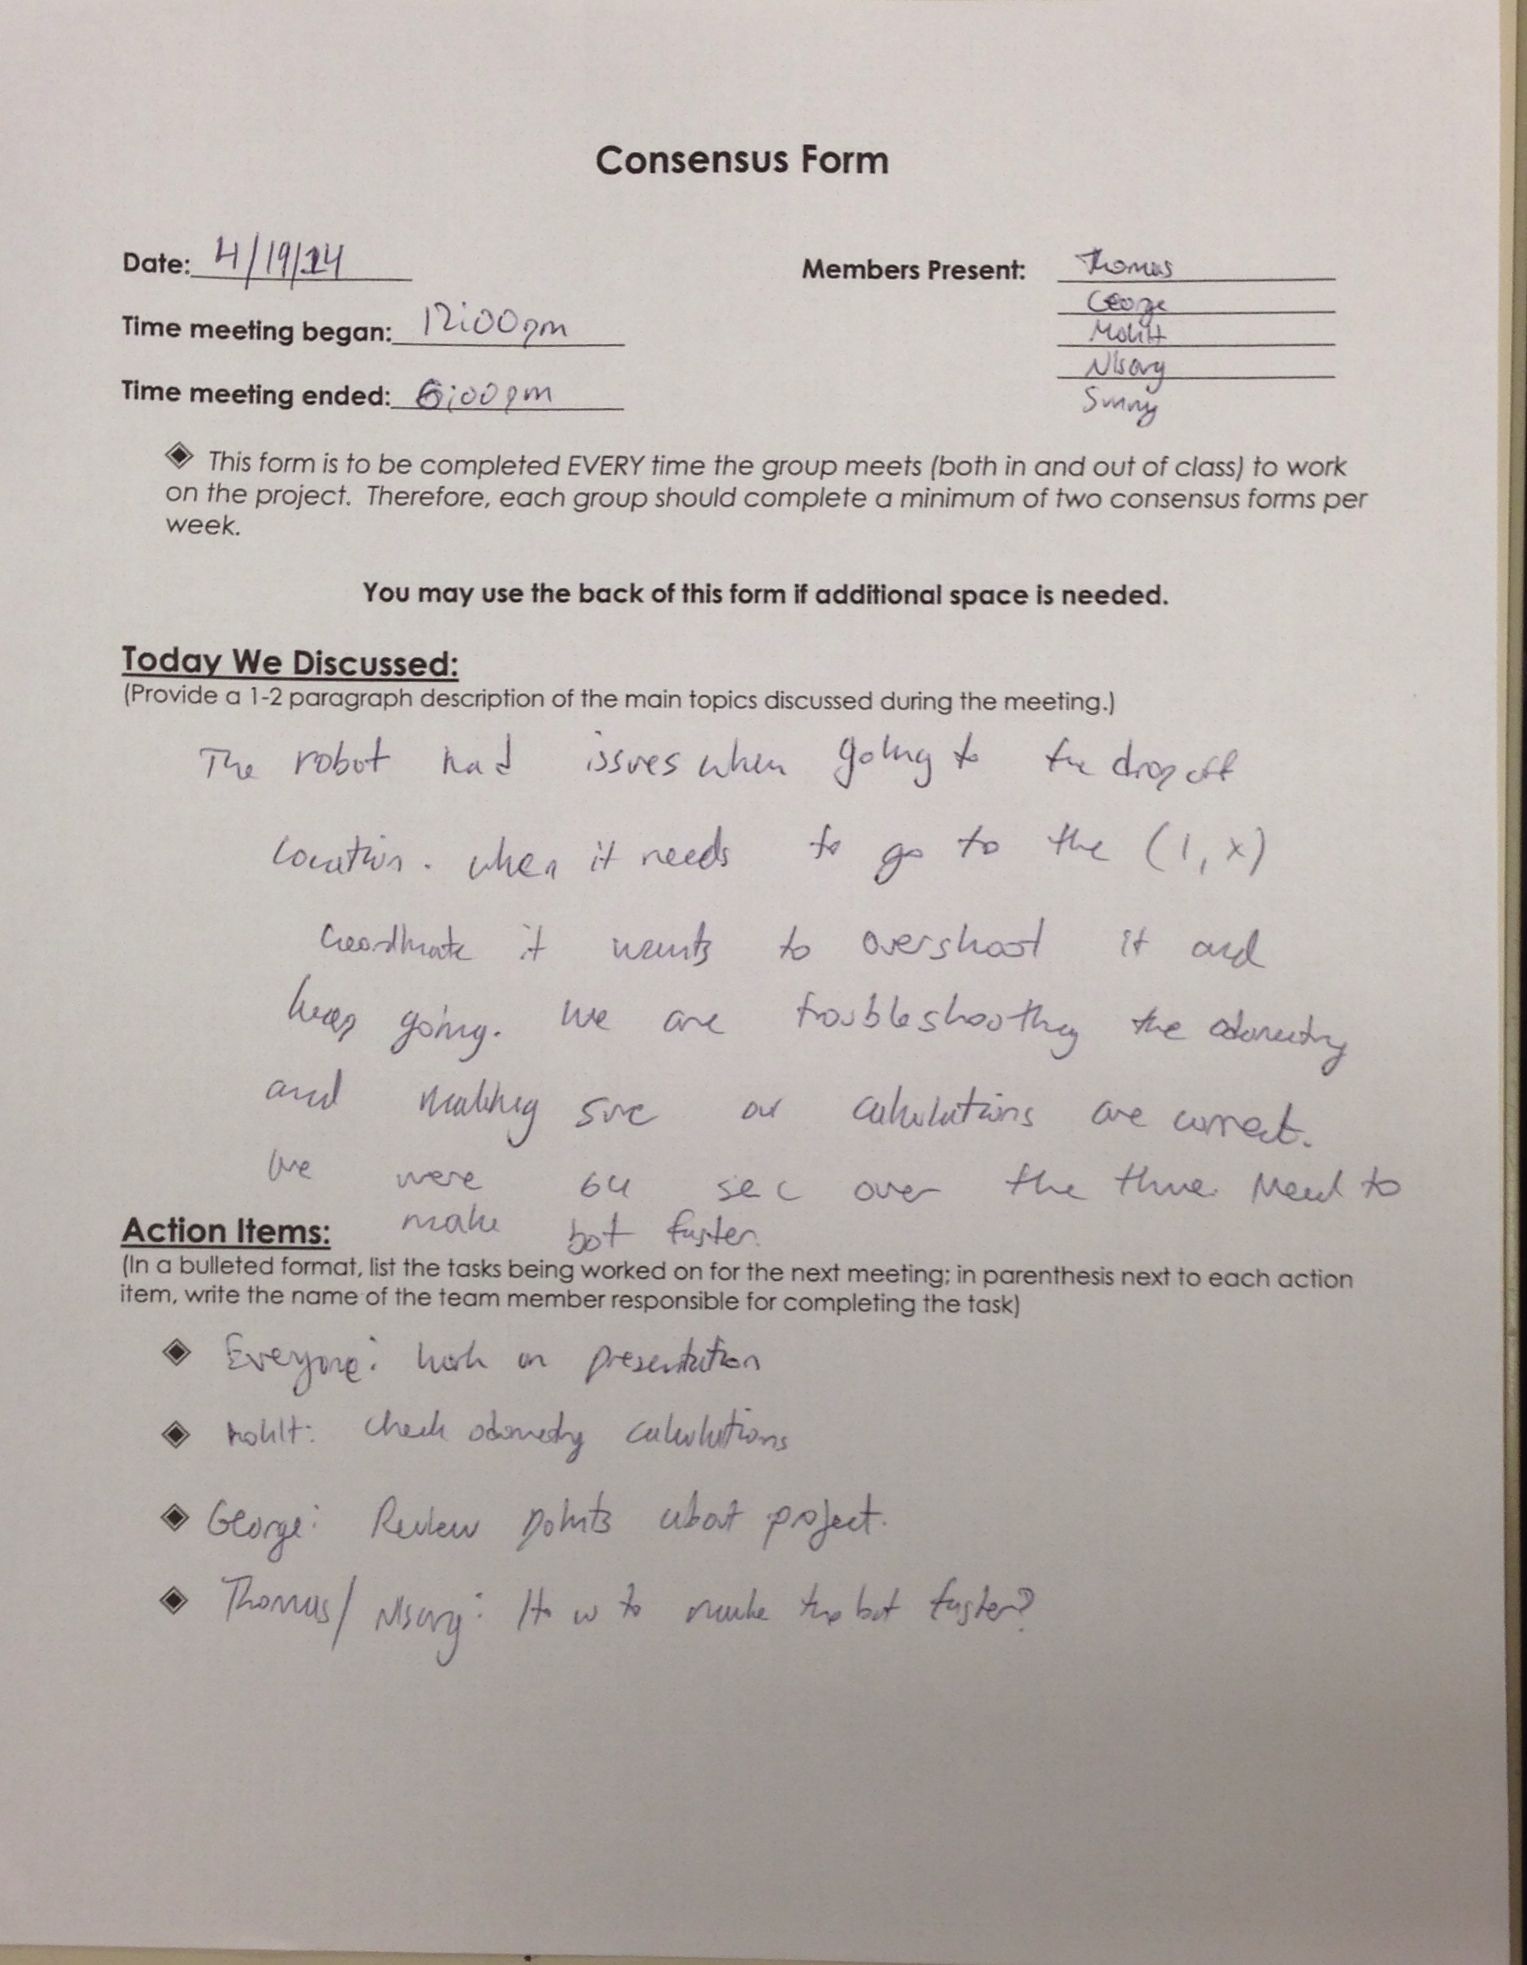 Consensus Form
Date: 4/19/14
Members Present: Thomas
George
Mohit
Time meeting began: 12:00pm
Nisarg
Time meeting ended: 6:00pm
Sunny
◈ This form is to be completed EVERY time the group meets (both in and out of class) to work
on the project. Therefore, each group should complete a minimum of two consensus forms per
week.
You may use the back of this form if additional space is needed.
Today We Discussed:
(Provide a 1-2 paragraph description of the main topics discussed during the meeting.)
The robot had issues when going to the drop off
location. when it needs to go to the (1,x)
coordinate it wants to overshoot it and
keep going. We are troubleshooting the odometry
and making sure our calculations are correct.
We were 64 sec over the time. Need to
make bot faster.
Action Items:
(In a bulleted format, list the tasks being worked on for the next meeting; in parenthesis next to each action
item, write the name of the team member responsible for completing the task)
◈ Everyone: work on presentation
◈ Mohit: check odometry calculations
◈ George: Review points about project.
◈ Thomas/Nisarg: How to make the bot faster?